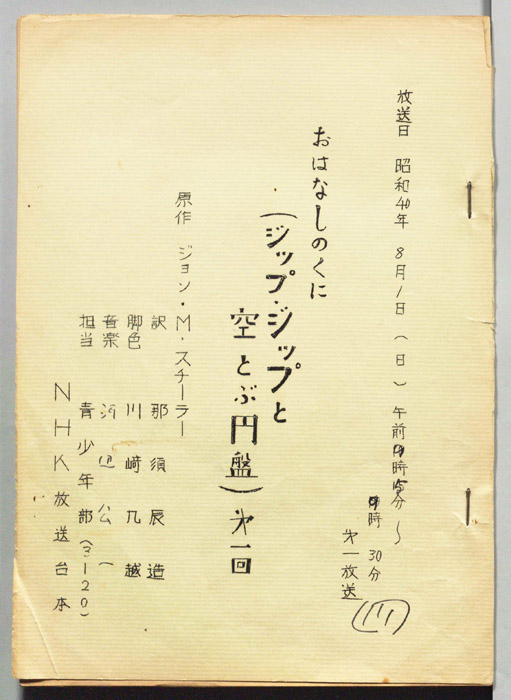 放送日 昭和40年 8月1日(日) 午前9時15分～
9時30分
第一放送
おはなしのくに
(ジップ・ジップと
空とぶ円盤) 第一回
原作 ジョン・M・スチーラー
訳 那須辰造
脚色 川崎九越
音楽 河辺公一
担当 青少年部(3-120)
NHK放送台本